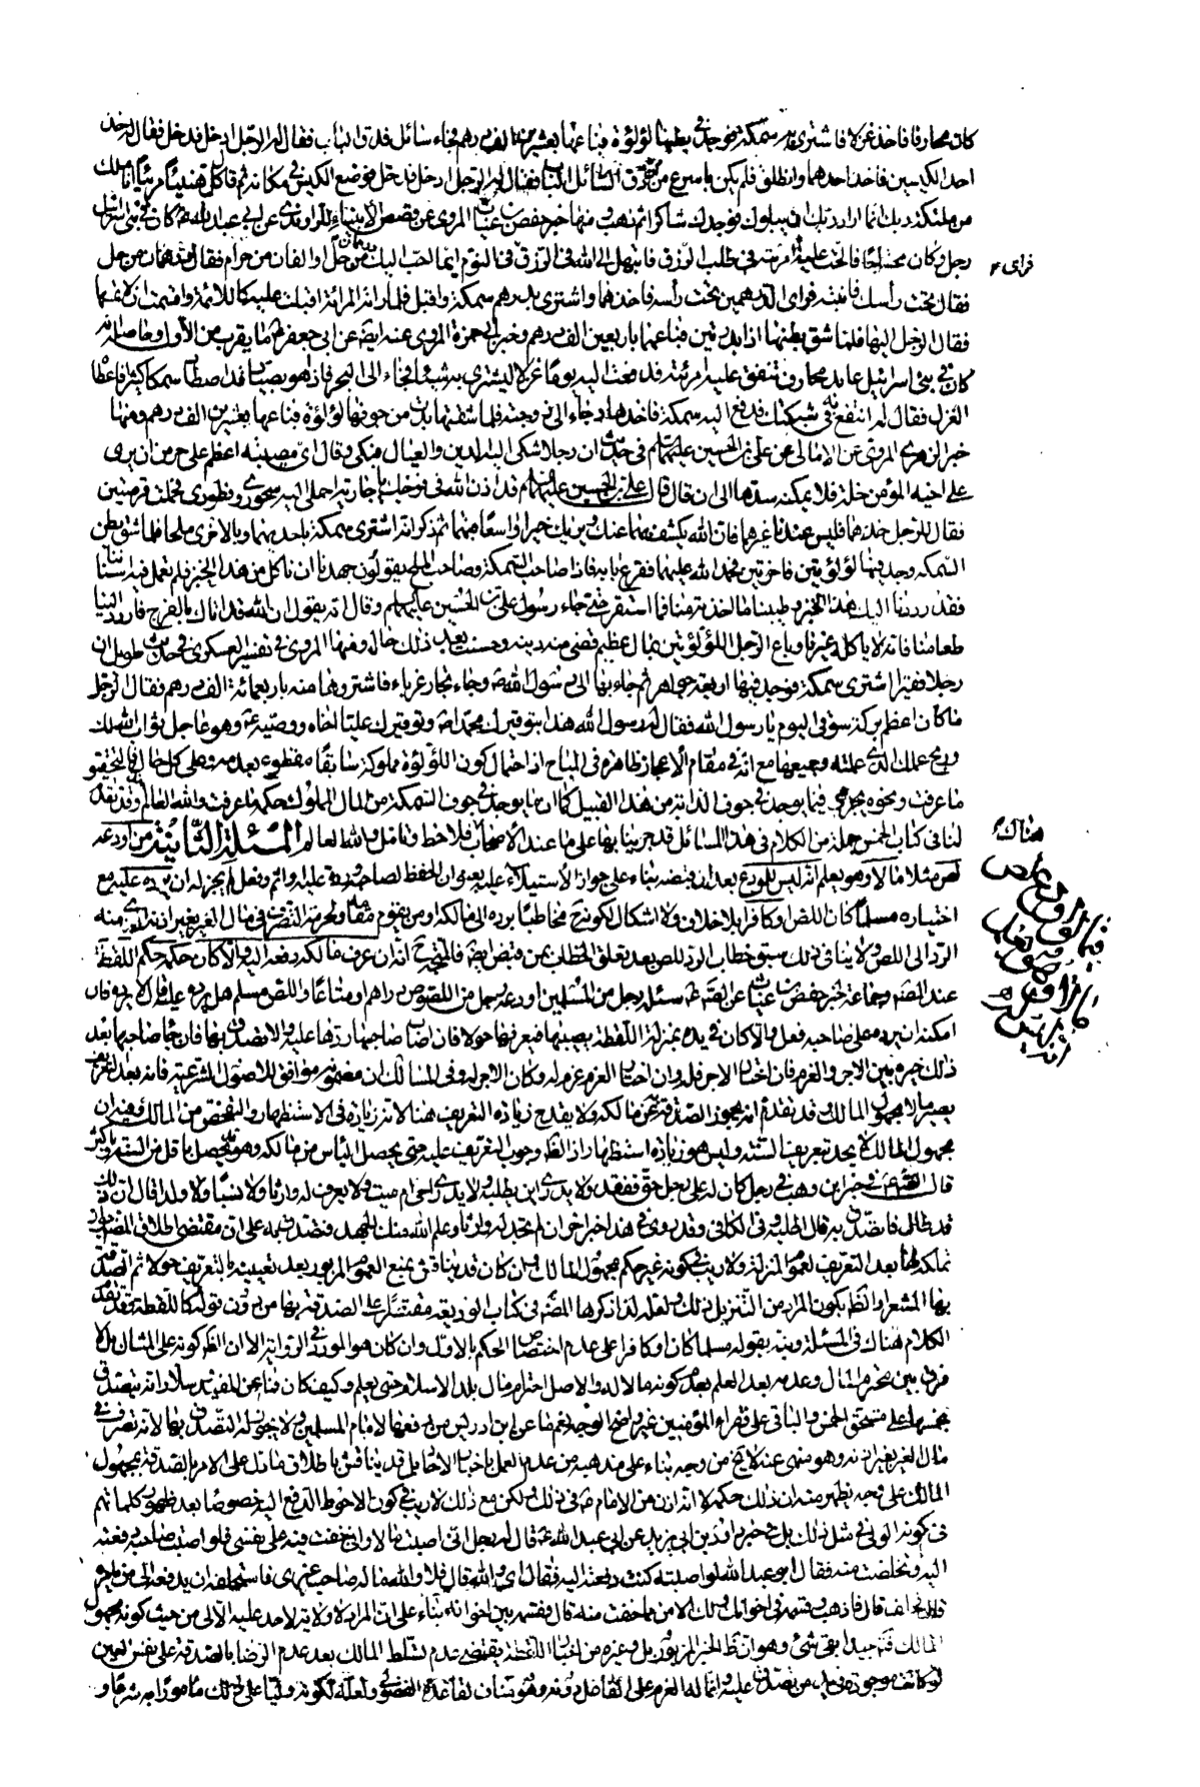 كان محارفا فاخذ غزلا فاشترى به سمكة فوجد في بطنها لؤلؤة فباعها بعشرين الف درهم فجاء سائل فدق الباب فقال له الرجل ادخل فدخل فقال له خذ
احد الكيسين فاخذ احدهما وانطلق فلم يكن باسرع من دق السائل الباب فقال له الرجل ادخل فدخل فوضع الكيس في مكانه ثم قال كل هنيئا مريئا انا ملك
من ملئكة ربك انما اراد ربك ان يبلوك فوجدك شاكرا ثم ذهب ومنها خبر حفص بن غياث المروى عن قصص الانبياء للراوندى عن ابي عبد الله ع كان في بنى اسرائيل
رجل وكان محتاجا فالحت عليه امرئته في طلب الرزق فابتهل الى الله في الرزق فراى في النوم ايما احب اليك درهمان من حل او الفان من حرام فقال درهمان من حل
فقال تحت رأسك فانتبه فراى الدرهمين تحت رأسه فاخذهما واشترى بدرهم سمكة واقبل فلما راته المرئة اقبلت عليه كاللائمة واقسمت ان لا تمسها
فقام الرجل اليها فلما شق بطنها اذا بدرتين فباعهما باربعين الف درهم وخبر ابي حمزة المروى عنه ايضا عن ابي جعفر ع ما يقرب من الاول وحاصله انه
كان في بنى اسرائيل عابد محارف تنفق عليه امرئته فدفعت اليه يوما غزلا ليشترى به شيئا فجاء الى البحر فاذا هو بصياد قد اصطاد سمكا كثيرا فاعطاه
الغزل فقال له انتفع به في شبكتك فدفع اليه سمكة فاخذها وجاء الى زوجته فلما شقتها بدت من جوفها لؤلؤة فباعها بعشرين الف درهم ومنها
خبر الزهرى المروى عن الامالى عن على بن الحسين عليهما السلام في حديث ان رجلا شكى اليه الدين والعيال فبكى وقال اى مصيبة اعظم على حر من ان يرى
على اخيه المؤمن خلة فلا يمكنه سدها الى ان قال قال على بن الحسين عليهما السلام قد اذن الله في فرجك يا جارية احملى اليه سحورى وفطورى فحملت قرصتين
فقال للرجل خذهما فليس عندنا غيرهما فان الله يكشف بهما عنك ويريك خيرا واسعا منهما ثم ذكر انه اشترى سمكة باحديهما وبالاخرى ملحا فلما شق بطن
السمكة وجد فيها لؤلؤتين فاخرتين فحمد الله عليهما فقرع بابه فاذا صاحب السمكة وصاحب الملح يقولون جهدنا ان ناكل من هذا الخبز فلم تعمل فيه اسناننا
فقد رددنا اليك هذا الخبز وطيبنا ما اخذته منا فما استقر حتى جاء رسول على بن الحسين عليهما السلام وقال انه يقول ان الله قد اتاك بالفرج فاردد الينا
طعامنا فانه لا ياكله غيرنا وباع الرجل اللؤلؤتين بمال عظيم قضى منه دينه وحسنت بعد ذلك حاله ومنها المروى في تفسير العسكرى في حديث طويل ان
رجلا فقيرا اشترى سمكة فوجد فيها اربعة جواهر ثم جاء بها الى رسول الله ص وجاء تجار غرباء فاشتروها منه باربعمائة الف درهم فقال الرجل
ما كان اعظم بركة سوقى اليوم يا رسول الله فقال له رسول الله هذا بتوقيرك محمدا ص وتوقيرك عليا اخاه ووصيه ع وهو عاجل ثواب الله لك
وربح عملك الذى عملته وجميعها مع انه في مقام الاعجاز ظاهرة في المباح اذ احتمال كون اللؤلؤة مملوكة سابقا مقطوع بعدمه وعلى كل حال فالتحقيق
ما عرفت ونحوه يجرى فيما يوجد في جوف الدابة من هذا القبيل كما ان ما يوجد في جوف السمكة من المال المملوك حكمه ما عرفت والله العالم وقد تقدم
لنا في كتاب الخمس جملة من الكلام في هذه المسائل قد جرينا بها على ما عند الاصحاب فلاحظ وتامل والله العالم المسئلة الثانية من اودعه
لص مثلا مالا وهو يعلم انه ليس للمودع بعد ان قبضه بناء على جواز الاستيلاء عليه بعنوان الحفظ لصاحبه ورده عليه واثم وفعل لم يجز له ان يرده عليه مع
اختياره مسلما كان اللص او كافرا بلا خلاف ولا اشكال لكونه ح مخاطبا برده الى مالكه او من يقوم مقامه ولحرمة التصرف في مال الغير بغير اذنه الذى منه
الرد الى اللص ولا ينافى ذلك سبق خطاب الرد للص بعد تعلق الخطاب بمن قبض ايضا فالمتجه ح انه ان عرف مالكه دفعه اليه والا كان حكمه حكم اللقطة
عند المصنف وجماعة لخبر حفص بن غياث عن الصادق ع سئله رجل من المسلمين اودعه رجل من اللصوص دراهم او متاعا واللص مسلم هل يرده عليه قال لا يرده فان
امكنه ان يرده على صاحبه فعل والا كان في يده بمنزلة اللقطة يصيبها فيعرفها حولا فان اصاب صاحبها ردها عليه والا تصدق بها فان جاء صاحبها بعد
ذلك خيره بين الاجر والغرم فان اختار الاجر فله وان اختار الغرم غرم له وكان الاجر له وفى المسالك ان مضمونه موافق للاصول الشرعية فانه بعد التعريف
يصير مالا مجهول المالك وقد تقدم انه يجوز الصدقة به عن مالكه ولا يقدح زيادة التعريف هنا لانه زيادة في الاستظهار والتفحص من المالك وفيه ان
مجهول المالك لا يحد تعريفه بالسنة وليس هو زيادة استظهار اذ الظ وجوب التعريف عليه حتى يحصل الياس من مالكه وهو قد يحصل باقل من السنة وباكثر
قال الصادق ع في خبر ابن وهب في رجل كان له على رجل حق ففقد ولا يدرى اين يطلبه ولا يدرى احى هو ام ميت ولا يعرف له وارثا ولا نسبا ولا ولدا قال ان ذلك
قد طال فاتصدق به قال اطلبه وفى الكافى وقد روى في هذا خبر اخر ان لم تجد له وارثا وعلم الله منك الجهد فتصدق به على ان مقتضى اطلاق المصنف جواز
تملكه لها بعد التعريف لعموم المنزلة ولا ريب في كونه غير حكم مجهول المالك وان كان قد يناقش بمنع العموم المزبور بعد تعقيبه بالتعريف حولا ثم التصدق
بها المشعر او الظ بكون المراد من التنزيل ذلك ولعله لذا ذكرها المصنف في كتاب الوديعة مقتصرا على الصدقة بها من دون تملكها كاللقطة وقد تقدم
الكلام هناك في المسئلة ونبه بقوله مسلما كان او كافرا على عدم اختصاص الحكم بالاول وان كان هو المورد في الرواية الا ان الظ كونه على المثال بلا
فرق بين محترم المال وعدمه بعد العلم بعدم كونها مالا له والاصل احترام مال بلد الاسلام حتى يعلم وكيف كان فما عن المفيد وسلار انه يتصدق
بخمسها على مستحق الخمس والباقى على فقراء المؤمنين غير واضح الوجه نعم ما عن ابن ادريس من دفعها لامام المسلمين ولا يجوز له التصدق بها لانه تصرف في
مال الغير بغير اذنه وهو منهى عنه لا يخ من وجه بناء على مذهبه من عدم العمل باخبار الاحاد بل قد يناقش باطلاق ما دل على الامر بالصدقة بمجهول
المالك على وجه يظهر منه ان ذلك حكمه لا انه اذن من الامام ع في ذلك ولكن مع ذلك لا ريب في كون الاحوط الدفع اليه خصوصا بعد ظهور كلماتهم
في كونه الولى في مثل ذلك بل في خبر داود بن ابي يزيد عن ابي عبد الله ع قال له رجل انى اصبت مالا وانى خفت فيه على نفسى فلو اصبت صاحبه دفعته
اليه وتخلصت منه فقال ابو عبد الله لو اصبته كنت دفعته اليه فقال اى والله قال فلا والله ما له صاحب غيرى فاستحلفه ان يدفعه الى من يامره
قال فحلف قال فاذهب وقسمه في اخوانك ولك الامن مما خفت منه قال فقسمه بين اخوانه بناء على ان المراد لا ولاية لاحد عليه الا لى من حيث كونه مجهول
المالك فتجيد ابقى شئ وهو ان ظ الخبر المزبور بل وغيره من اخبار اللقطة يقتضى عدم تسلط المالك بعد عدم الرضا بالصدقة على نفس العين
لو كانت موجودة في يد من تصدق عليه وانما له الغرم على القاضى ونحوه وتنافى لقاعدة الفضولى ولعله لكونه وليا على ذلك مامورا به شرعا و
فراى
هناك